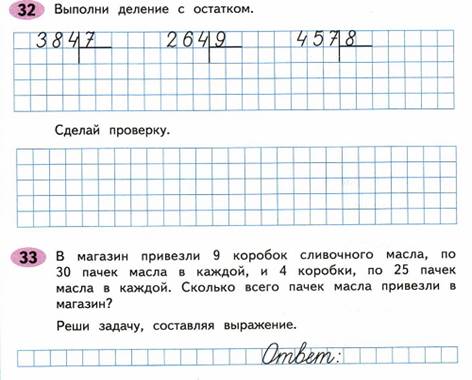 32 Выполни деление с остатком.
384 7 264 9 457 8
Сделай проверку.
33 В магазин привезли 9 коробок сливочного масла, по
30 пачек масла в каждой, и 4 коробки, по 25 пачек
масла в каждой. Сколько всего пачек масла привезли в
магазин?
Реши задачу, составляя выражение.
Ответ: